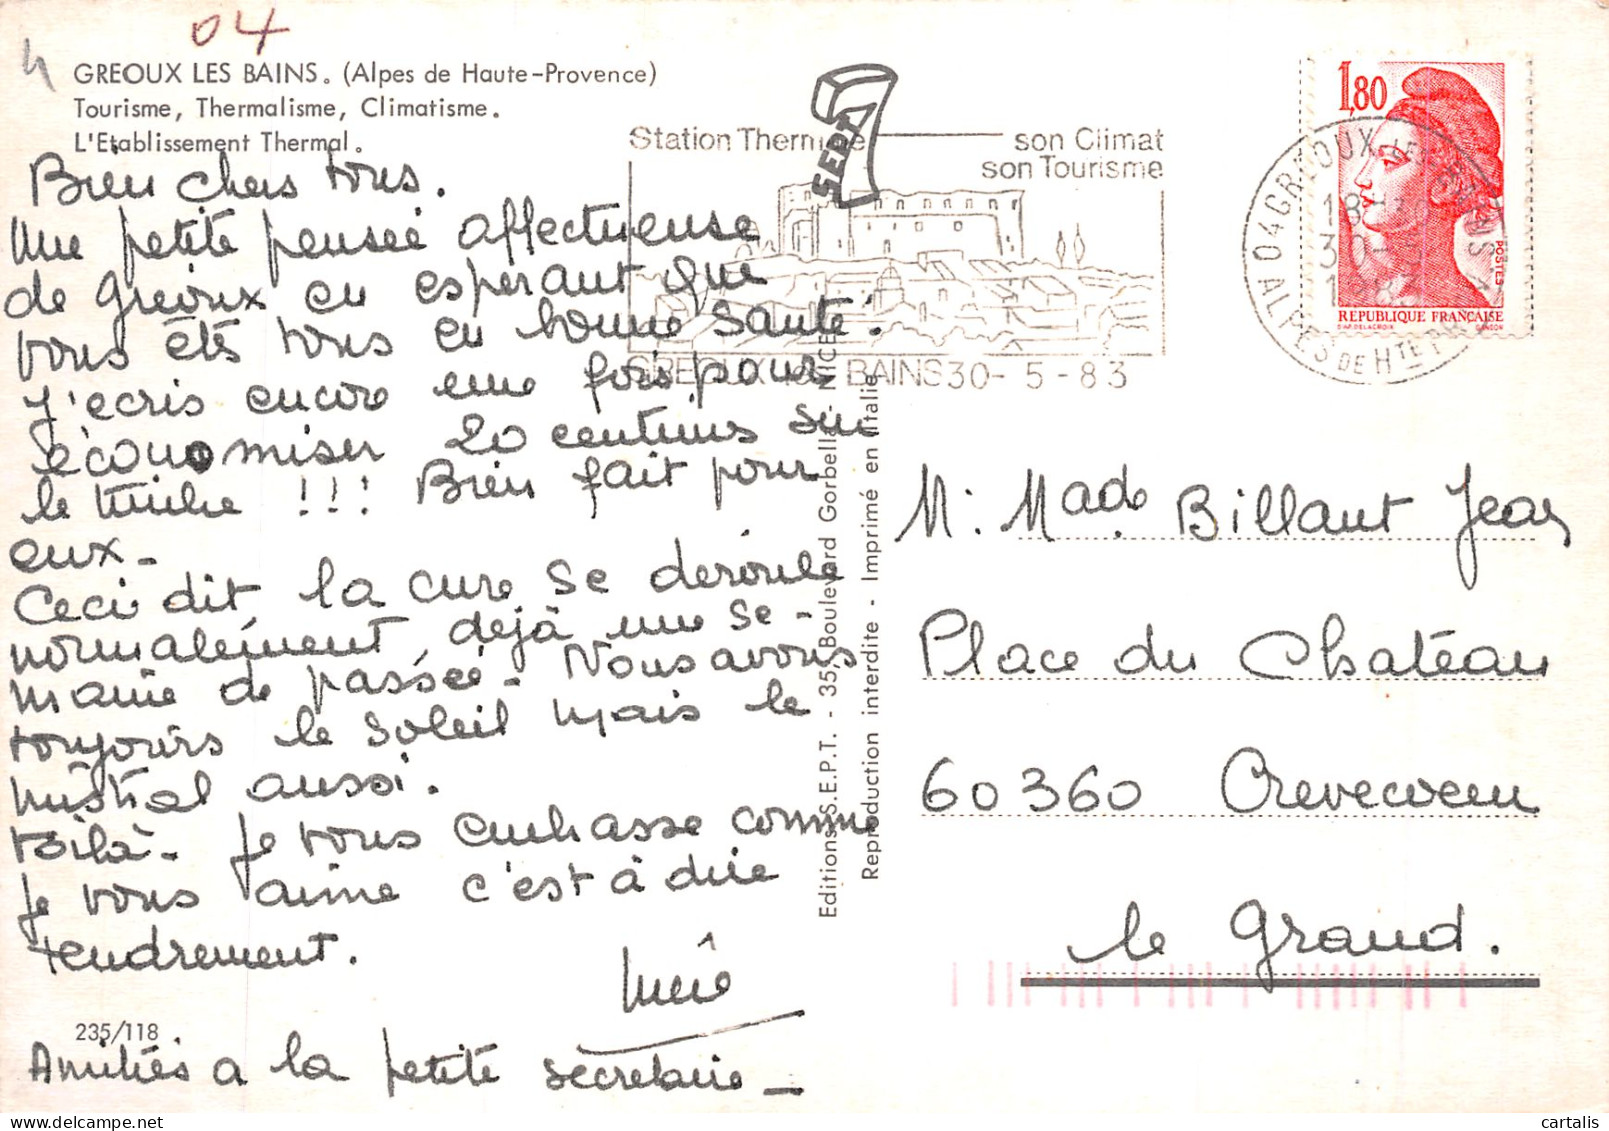 04
4
GREOUX LES BAINS. (Alpes de Haute-Provence)
Tourisme, Thermalisme, Climatisme.
L'Etablissement Thermal.
Bien chers tous.
Une petite pensée affectueuse
de Gréoux en espérant que
vous êts tous en bonne santé.
J'ecris encore une fois pour
économiser 20 centimes sur
le timbre !!! Bien fait pour
eux-
Ceci dit la cure se deroule
normalement, dejà une se-
maine de passée. Nous avons
toujours le soleil mais le
mistral aussi.
Voilà- je vous embrasse comme
je vous aime c'est à dire
tendrement.
235/118
Amitiés a la petite secretaire-
SEPT
Editions S.E.P.T. - 35, Boulevard Gorbella - NICE
Reproduction interdite - Imprimé en Italie
Station Thermale son Climat
son Tourisme
GREOUX LES BAINS 30-5-83
04 GREOUX-LES-BAINS
ALPES DE HTE PR
18H
30-
1983
1,80
POSTES
REPUBLIQUE FRANÇAISE
D'AP. DELACROIX GANDON
M. Made Billaut Jean
Place du Chateau
60360 Crevecoeur
le Grand.
cartalis